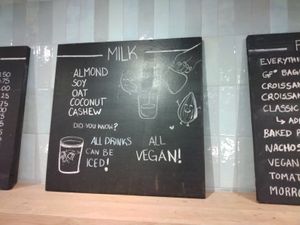 .50
.75
.00
.25
.75
MILK
ALMOND
SOY
OAT
COCONUT
CASHEW
DID YOU KNOW?
ALL DRINKS
CAN BE
ICED!
ALL
VEGAN!
EVERYTHIN
GF* BAG
CROISSAN
CROISSAN
CLASSIC
↳ AD
BAKED P
NACHOS
VEGAN
TOMAT
MORRO